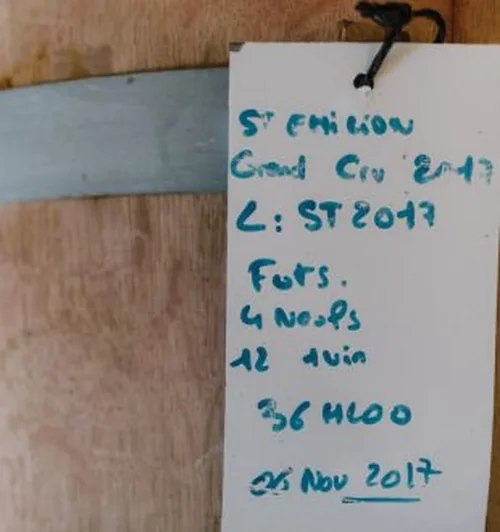 ST EMILION
Grand Cru 2017
L: ST2017
Futs.
4 Neufs
12 1vin
36 HL00
06 Nov 2017